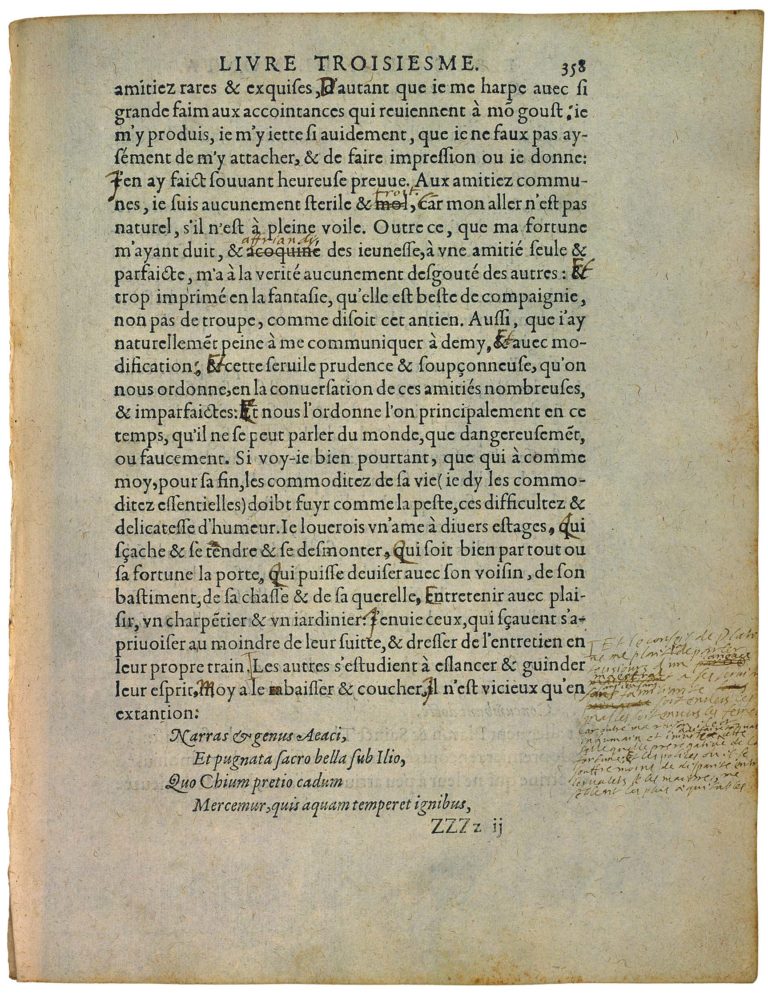 LIVRE TROISIESME. 358
amitiez rares & exquises, D'autant que ie me harpe auec si
grande faim aux accointances qui reuiennent à mõ goust: ie
m'y produis, ie m'y iette si auidement, que ie ne faux pas ay-
sément de m'y attacher, & de faire impression ou ie donne:
J'en ay faict souuant heureuse preuue. Aux amitiez commu-
froit
nes, ie suis aucunement sterile & mol, Car mon aller n'est pas
naturel, s'il n'est à pleine voile. Outre ce, que ma fortune
affriandé
m'ayant duit, & acoquiné des ieunesse, à vne amitié seule &
parfaicte, m'a à la verité aucunement desgouté des autres: Et
trop imprimé en la fantasie, qu'elle est beste de compaignie,
non pas de troupe, comme disoit cet antien. Aussi, que i'ay
naturellemẽt peine à me communiquer à demy, Et auec mo-
dification: Et cette seruile prudence & soupçonneuse, qu'on
nous ordonne, en la conuersation de ces amitiés nombreuses,
& imparfaictes: Et nous l'ordonne l'on principalement en ce
temps, qu'il ne se peut parler du monde, que dangereusemẽt,
ou faucement. Si voy-ie bien pourtant, que qui à comme
moy, pour sa fin, les commoditez de sa vie (ie dy les commo-
ditez essentielles) doibt fuyr comme la peste, ces difficultez &
delicatesse d'humeur. Ie louerois vn'ame à diuers estages, Qui
sçache & se tendre & se desmonter, Qui soit bien par tout ou
sa fortune la porte, Qui puisse deuiser auec son voisin, de son
bastiment, de sa chasse & de sa querelle, Entretenir auec plai-
sir, vn charpẽtier & vn iardinier: J'enuie ceux, qui sçauent s'a-
priuoiser au moindre de leur suitte, & dresser de l'entretien en
leur propre train. Les autres s'estudient à eslancer & guinder
leur esprit, Moy a le baisser & coucher, Il n'est vicieux qu'en
extantion:
Narras & genus Aeaci,
Et pugnata sacro bella sub Ilio,
Quo Chium pretio cadum
Mercemur, quis aquam temperet ignibus,
ZZZz ij
Et le conseil de Platon
ne me plait de parler